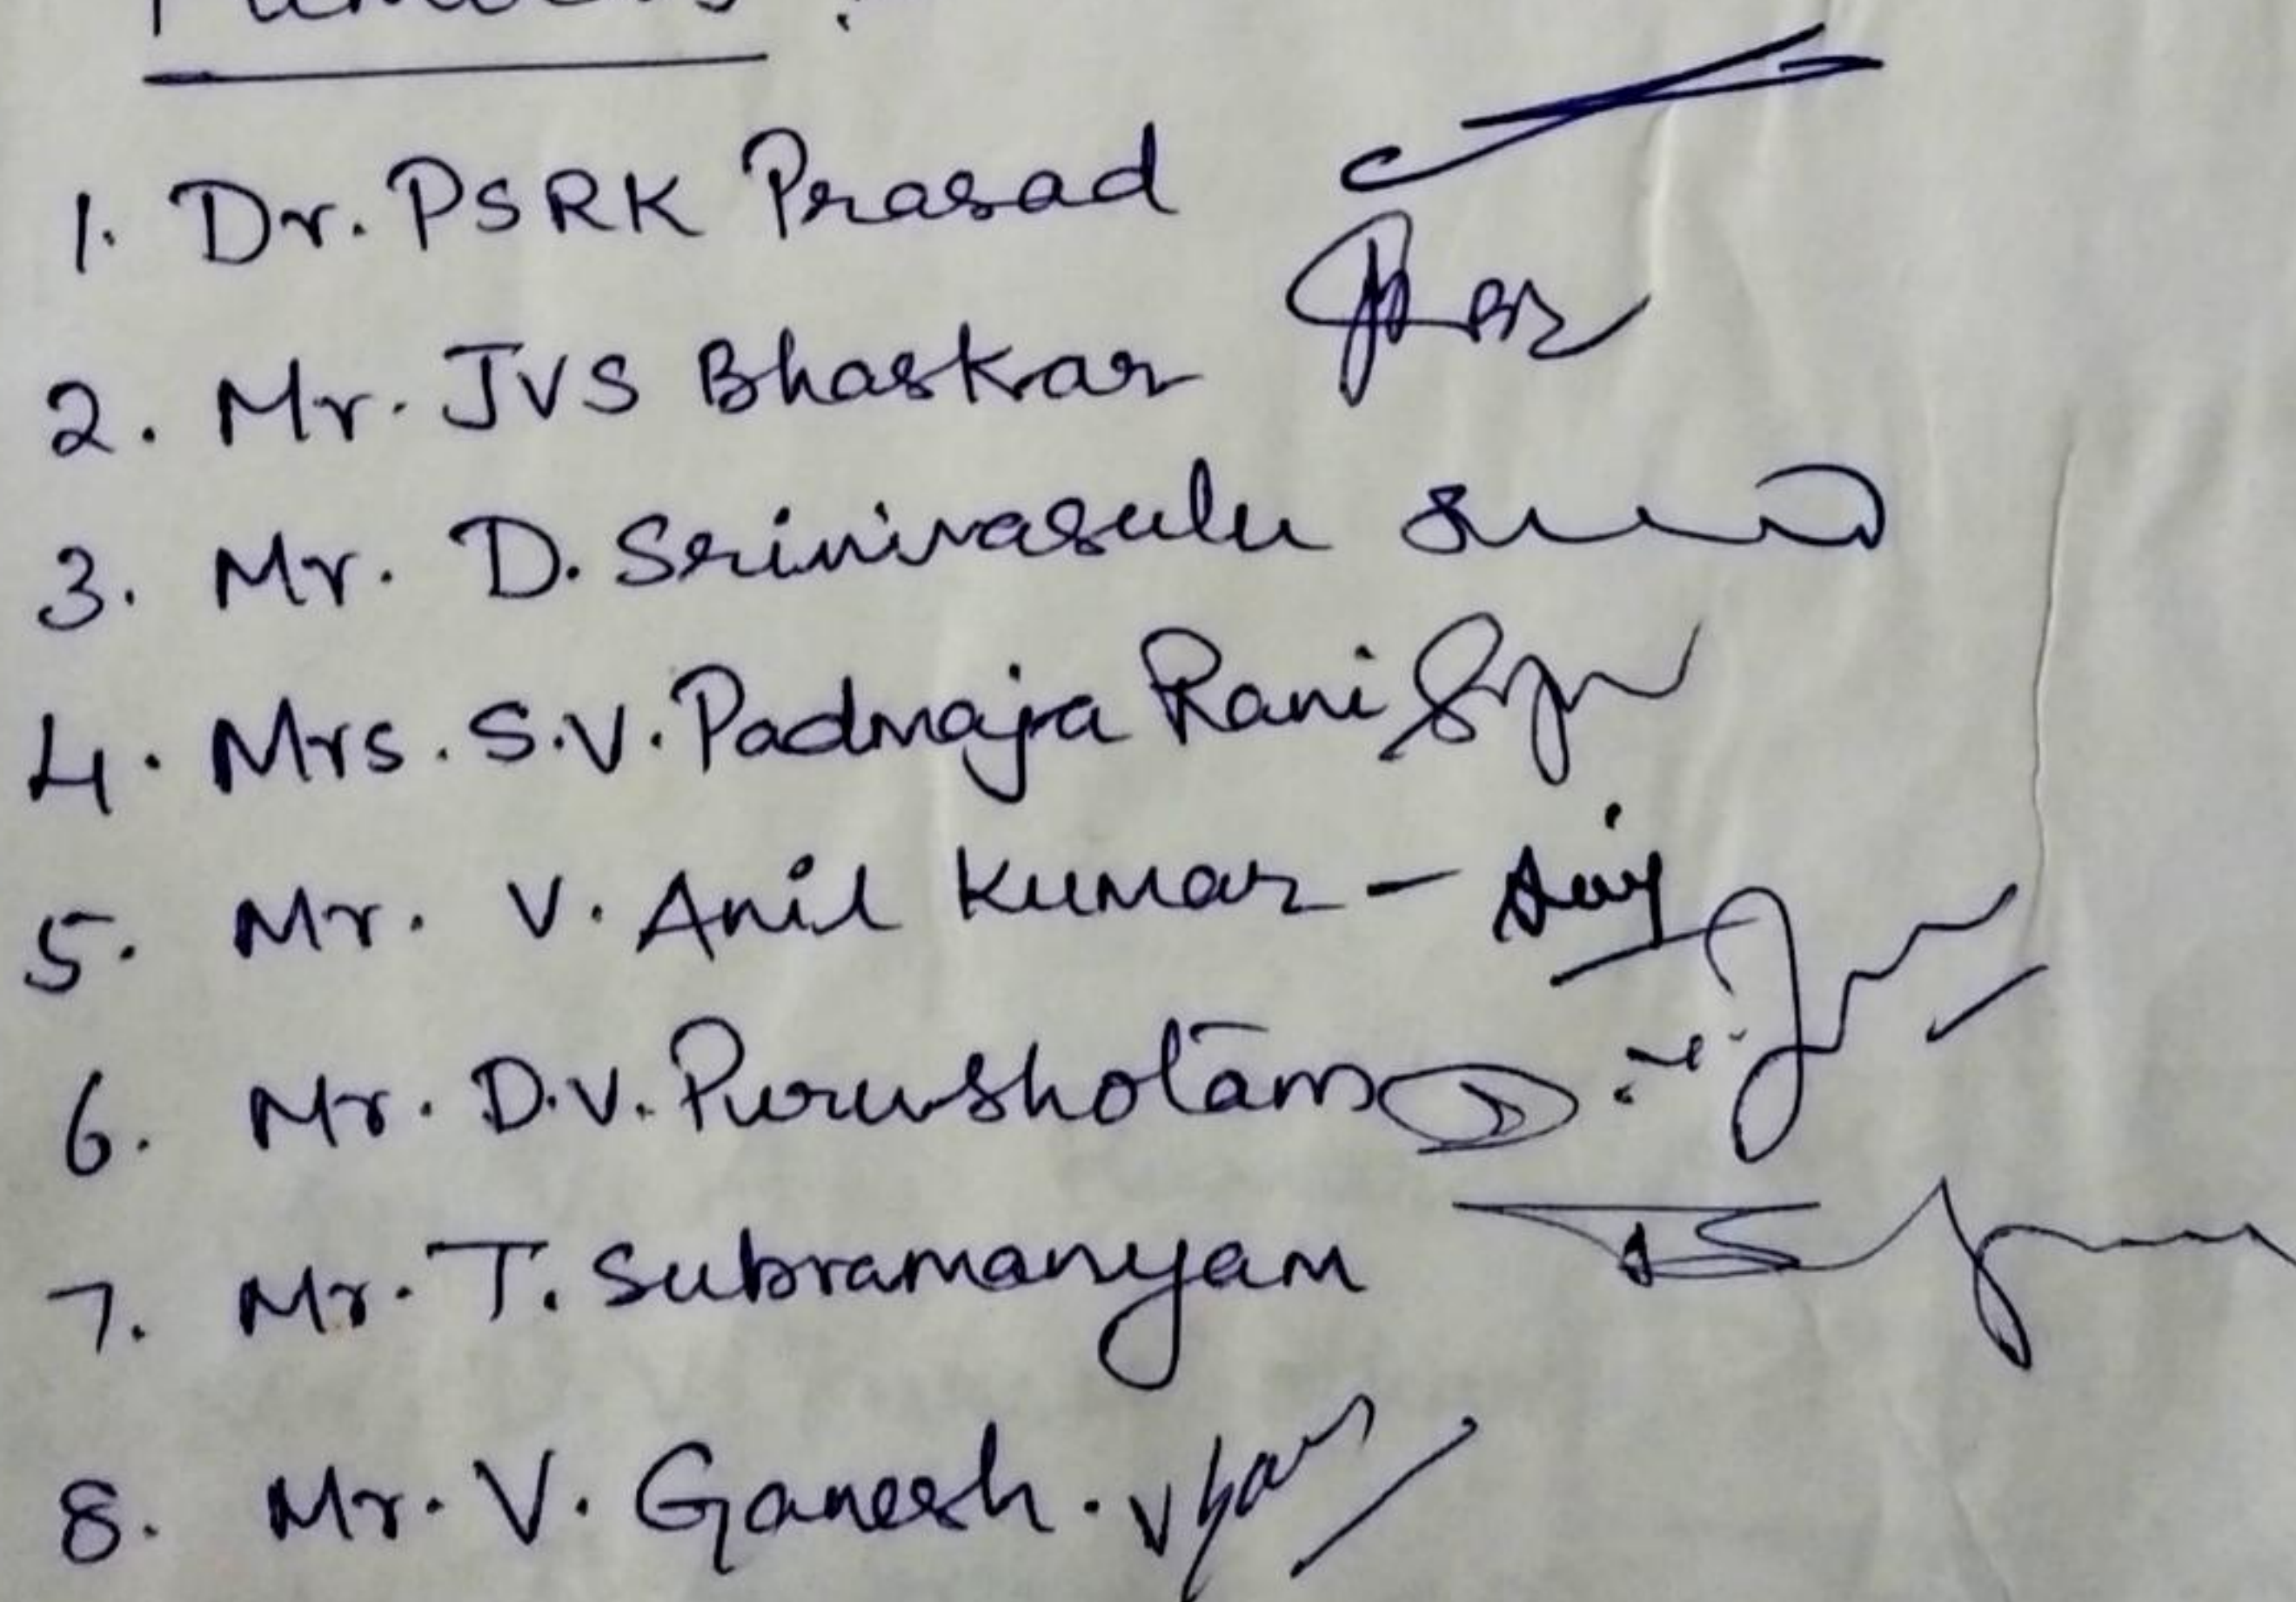 Members :
1. Dr. PSRK Prasad
2. Mr. JVS Bhaskar
3. Mr. D. Srinivasulu
4. Mrs. S.V. Padmaja Rani
5. Mr. V. Anil Kumar -
6. Mr. D.V. Purushotam
7. Mr. T. Subramanyam
8. Mr. V. Ganesh.